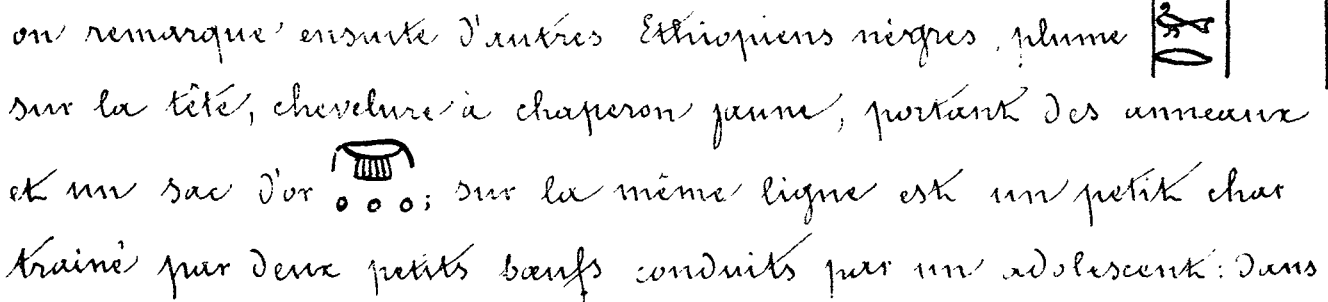 on remarque ensuite d'autres Ethiopiens nègres, plume
sur la tête, chevelure à chaperon jaune, portant des anneaux
et un sac d'or ; sur la même ligne est un petit char
trainé par deux petits bœufs conduits par un adolescent : dans